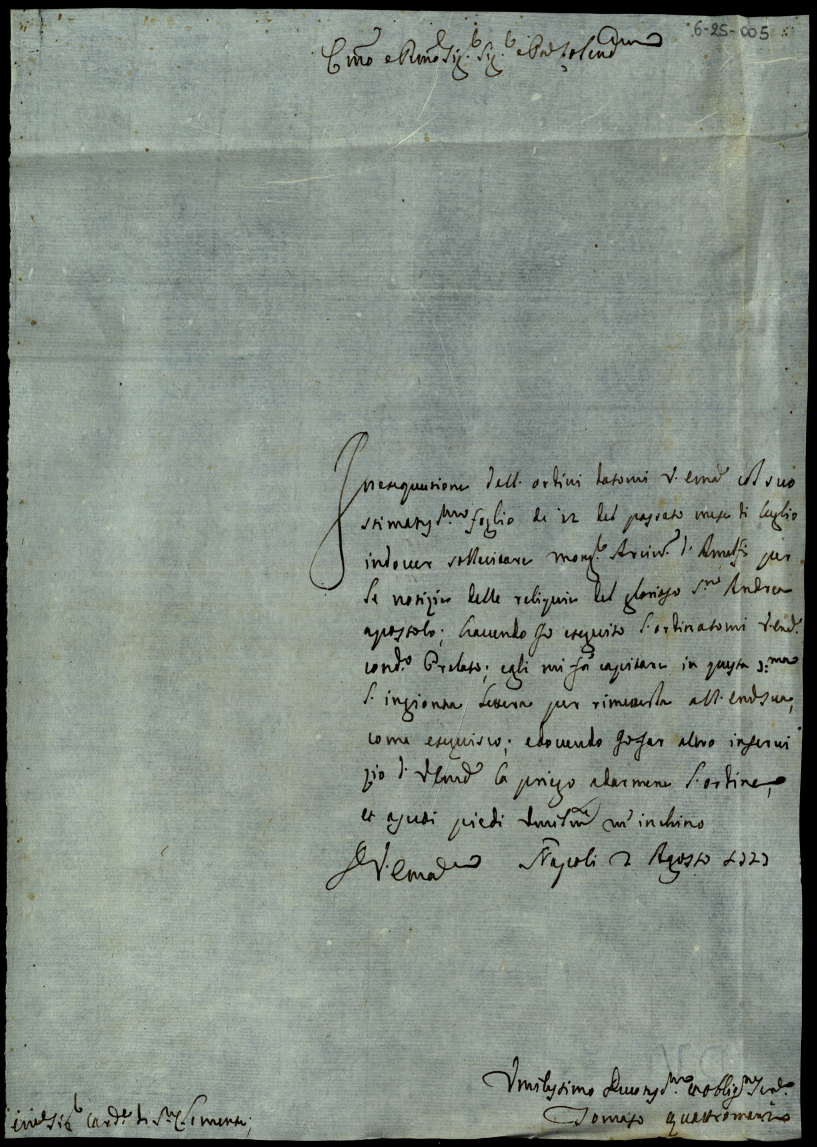 6-25-005
Em̃o e Rm̃o Sig.r Sig.r e Pad.
In esequzione dell. ordini datomi V. Emã col suo
stimatiss.mo foglio de 12 del passato mese di luglio
in dover sollecitare mons.r Arciv.o d'Amalfi per
le notizie delle reliquie del glorioso S.to Andrea
apostolo; havendo Io eseguito l'ordinatomi V. Em.
con d.o Prelato; egli mi fa capitare in questa
l. ingionta lettera per rimetterla all. Em. Sua,
come esequisco; e dovendo Io far altro in servi
zio di V. Em. la priego a darmene l'ordine,
et a suoi piedi Umilm.e m'inchino
Di V. Em. Napoli 2 Agosto
Umilissimo Devotiss.mo et obblig.mo Ser.
Tomaso quattromani
Sig.r Card.e di S.n Clemente;